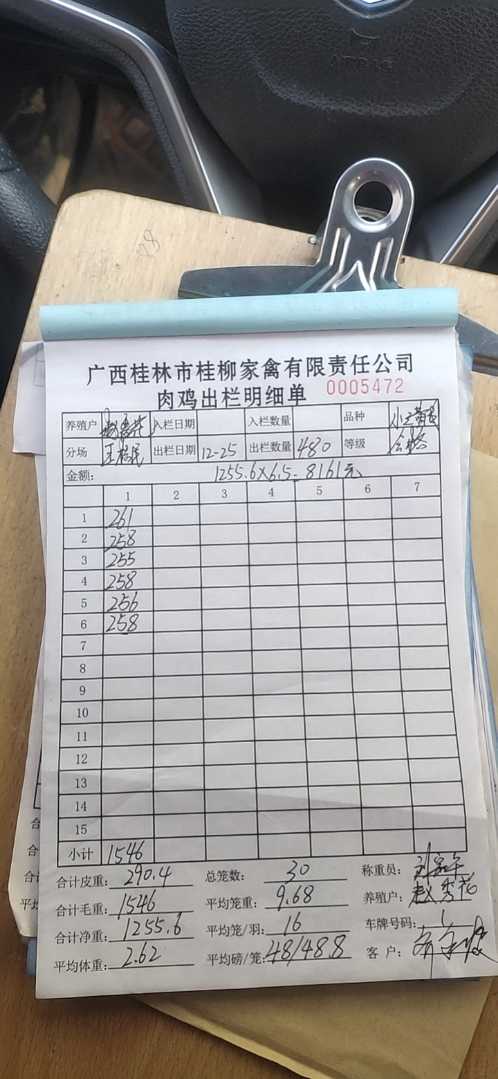 广西桂林市桂柳家禽有限责任公司
肉鸡出栏明细单 0005472
养殖户 入栏日期 入栏数量 品种
分场 出栏日期 12-25 出栏数量 480 等级 合格
金额: 1255.6×6.5=8161元
1 2 3 4 5 6 7
1 261
2 258
3 255
4 258
5 256
6 258
7
8
9
10
11
12
13
14
15
小计 1546
合计皮重: 290.4 总笼数: 30 称重员:
合计毛重: 1546 平均笼重: 9.68 养殖户: 赵秀花
合计净重: 1255.6 平均笼/羽: 16 车牌号码:
平均体重: 2.62 平均磅/笼: 48/48.8 客户: